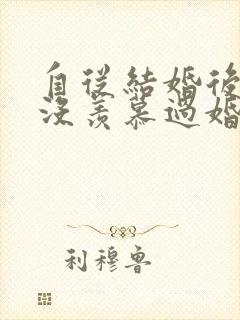 自従結婚後
沒羨慕過婚
利穆魯